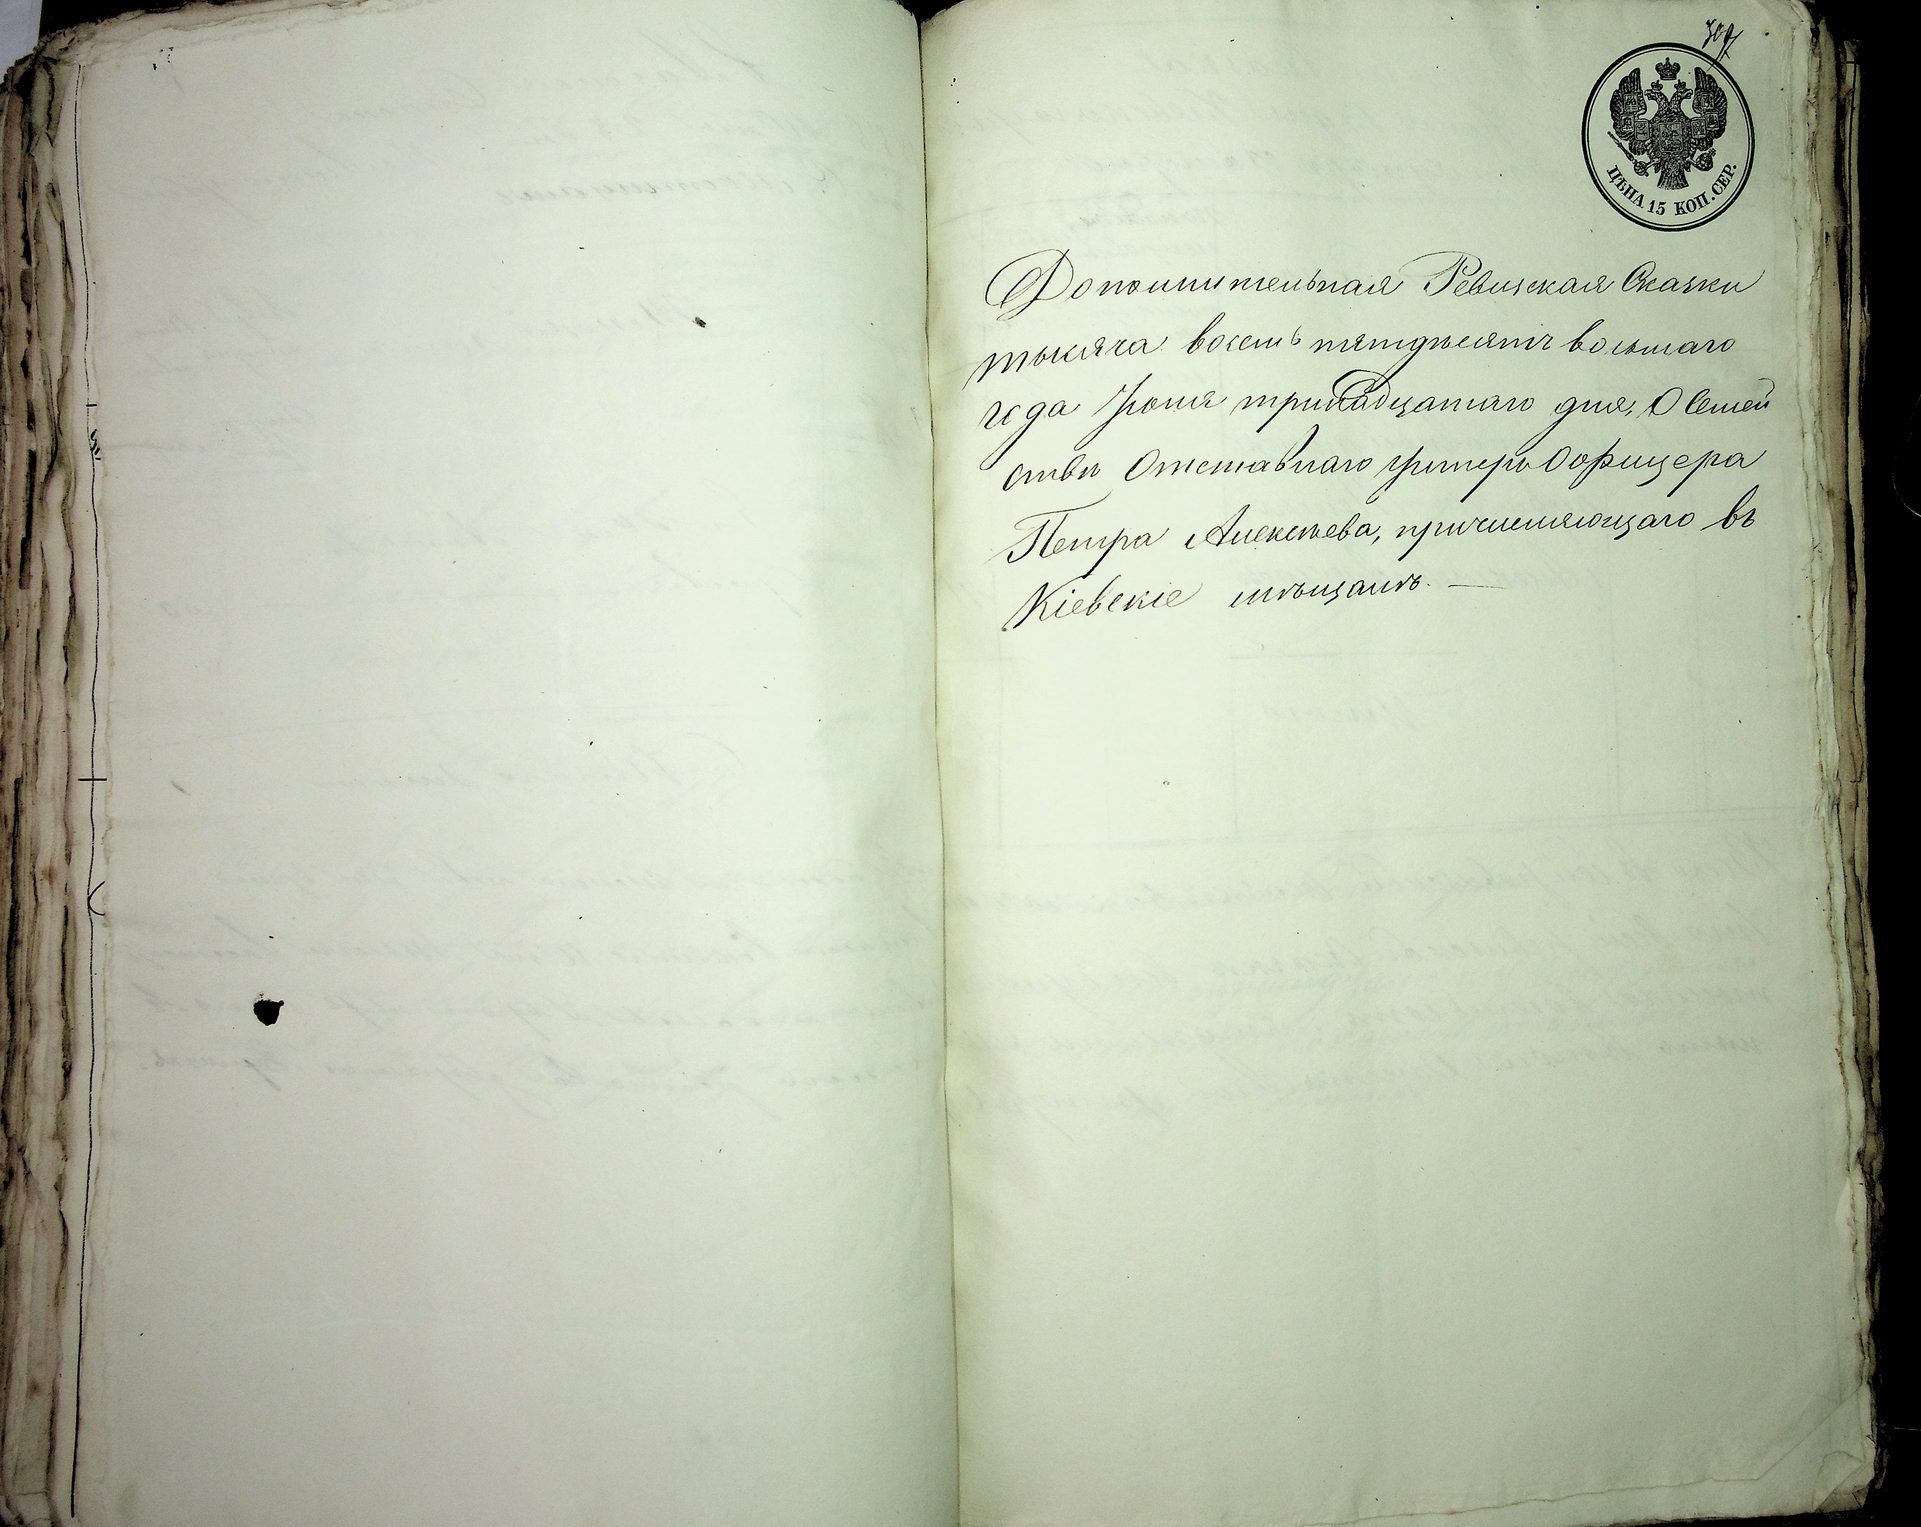 307
ЦѢНА 15 КОП. СЕР.
Дополнительная Ревизская Сказки
тысяча восемь пятдесятъ восьмаго
года Іюня тринадцатаго дня, О Семей
ствѣ Отставнаго Унтеръ Офицера
Петра Алексѣева, причисляющаго въ
Кіевскіе мѣщанъ. —